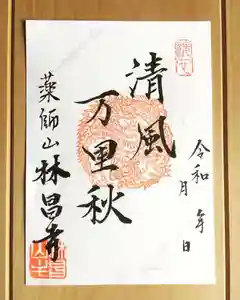 清風
万里秋
令和 年
月 日
薬師山林昌寺